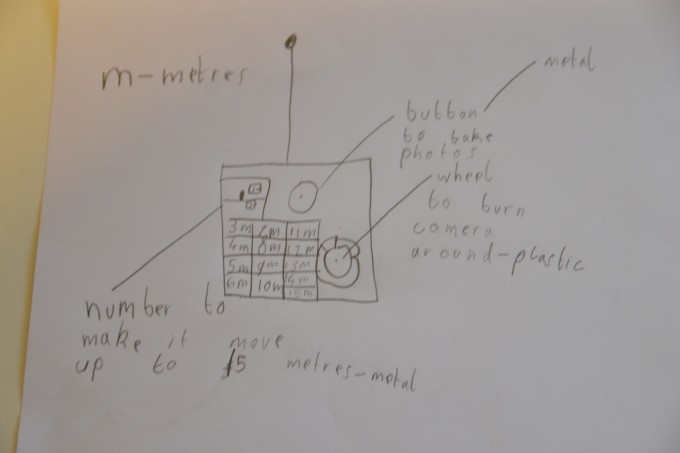 m-metres
metal
button
to take
photos
wheel
to turn
camera
around-plastic
3m 7m 11m
4m 8m 12m
5m 9m 13m
6m 10m 14m
15m
number to
make it move
up to 15 metres-metal